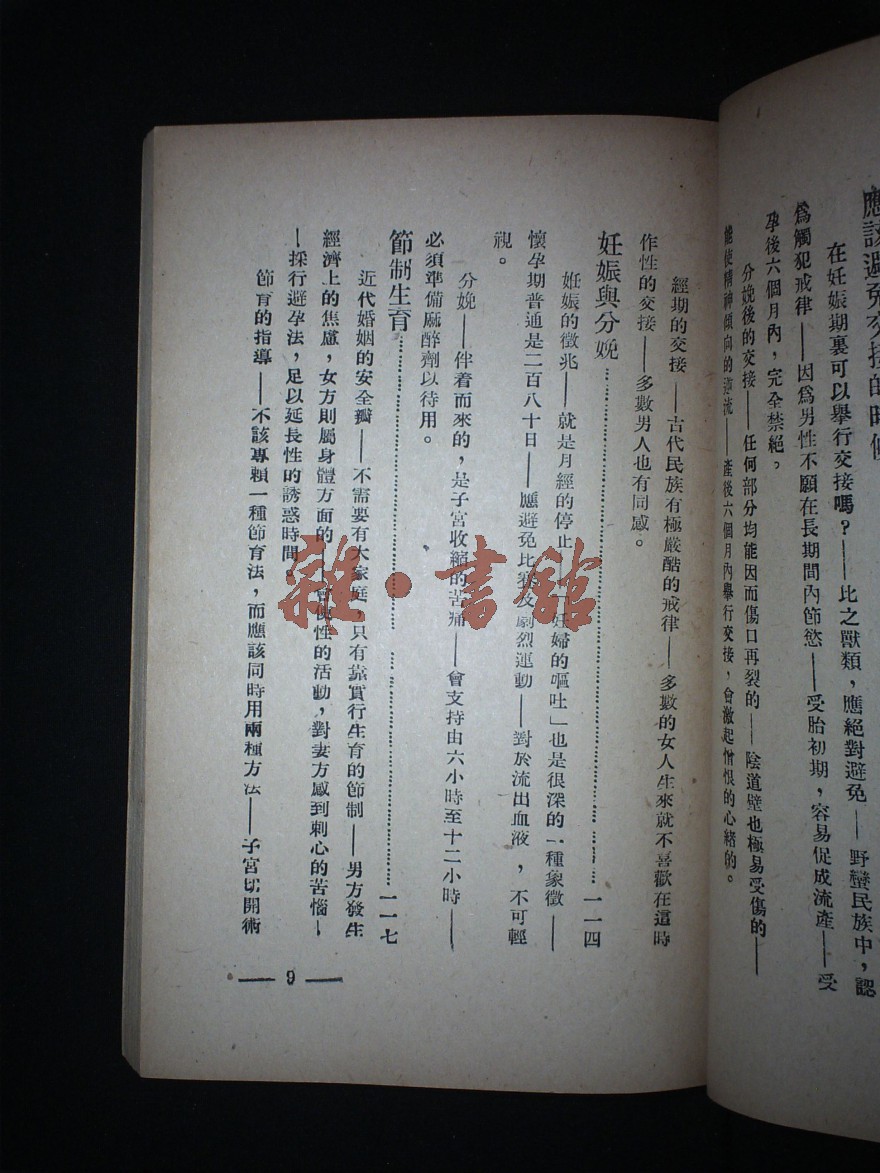 應該避免交接的時候
在妊娠期裏可以舉行交接嗎？——比之獸類，應絕對避免——野蠻民族中，認
爲觸犯戒律——因爲男性不願在長期間內節慾——受胎初期，容易促成流產——受
孕後六個月內，完全禁絕。
分娩後的交接——任何部分均能因而傷口再裂的——陰道壁也極易受傷的——
能使精神傾向的逆流——產後六個月內舉行交接，會激起憎恨的心緒的。
經期的交接——古代民族有極嚴酷的戒律——多數的女人生來就不喜歡在這時
作性的交接——多數男人也有同感。
妊娠與分娩……一一四
妊娠的徵兆——就是月經的停止——妊婦的嘔吐」也是很深的一種象徵——
懷孕期普通是二百八十日——應避免比賽及劇烈運動——對於流出血液，不可輕
視。
分娩——伴着而來的，是子宮收縮的苦痛——會支持由六小時至十二小時——
必須準備麻醉劑以待用。
節制生育……一一七
近代婚姻的安全瓣——不需要有大家庭，只有靠實行生育的節制——男方發生
經濟上的焦慮，女方則屬身體方面的——會使性的活動，對妻方感到刺心的苦惱—
—採行避孕法，足以延長性的誘惑時間。
節育的指導——不該專賴一種節育法，而應該同時用兩種方法——子宮切開術
— 9 —
雜·書館